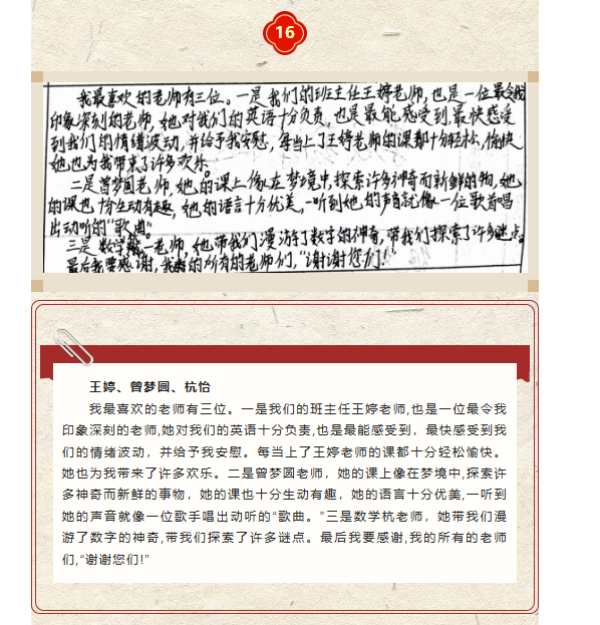 16
我最喜欢的老师有三位。一是我们的班主任王婷老师,也是一位最令我
印象深刻的老师,她对我们的英语十分负责,也是最能感受到,最快感受
到我们的情绪波动,并给予我安慰,每当上了王婷老师的课都十分轻松,愉快
她也为我带来了许多欢乐。
二是曾梦圆老师,她的课上像在梦境中,探索许多神奇而新鲜的物,她
的课也十分生动有趣,她的语言十分优美,一听到她的声音就像一位歌首唱
出动听的“歌曲”。
三是数学 老师,她带我们漫游了数字的神奇,带我们探索了许多谜点。
最后我要感谢,我的所有的老师们,“谢谢您们!”
王婷、曾梦圆、杭怡
我最喜欢的老师有三位。一是我们的班主任王婷老师,也是一位最令我
印象深刻的老师,她对我们的英语十分负责,也是最能感受到，最快感受到我
们的情绪波动，并给予我安慰。每当上了王婷老师的课都十分轻松愉快。
她也为我带来了许多欢乐。二是曾梦圆老师，她的课上像在梦境中,探索许
多神奇而新鲜的事物，她的课也十分生动有趣，她的语言十分优美,一听到
她的声音就像一位歌手唱出动听的“歌曲。”三是数学杭老师，她带我们漫
游了数字的神奇,带我们探索了许多谜点。最后我要感谢,我的所有的老师
们,“谢谢您们!”